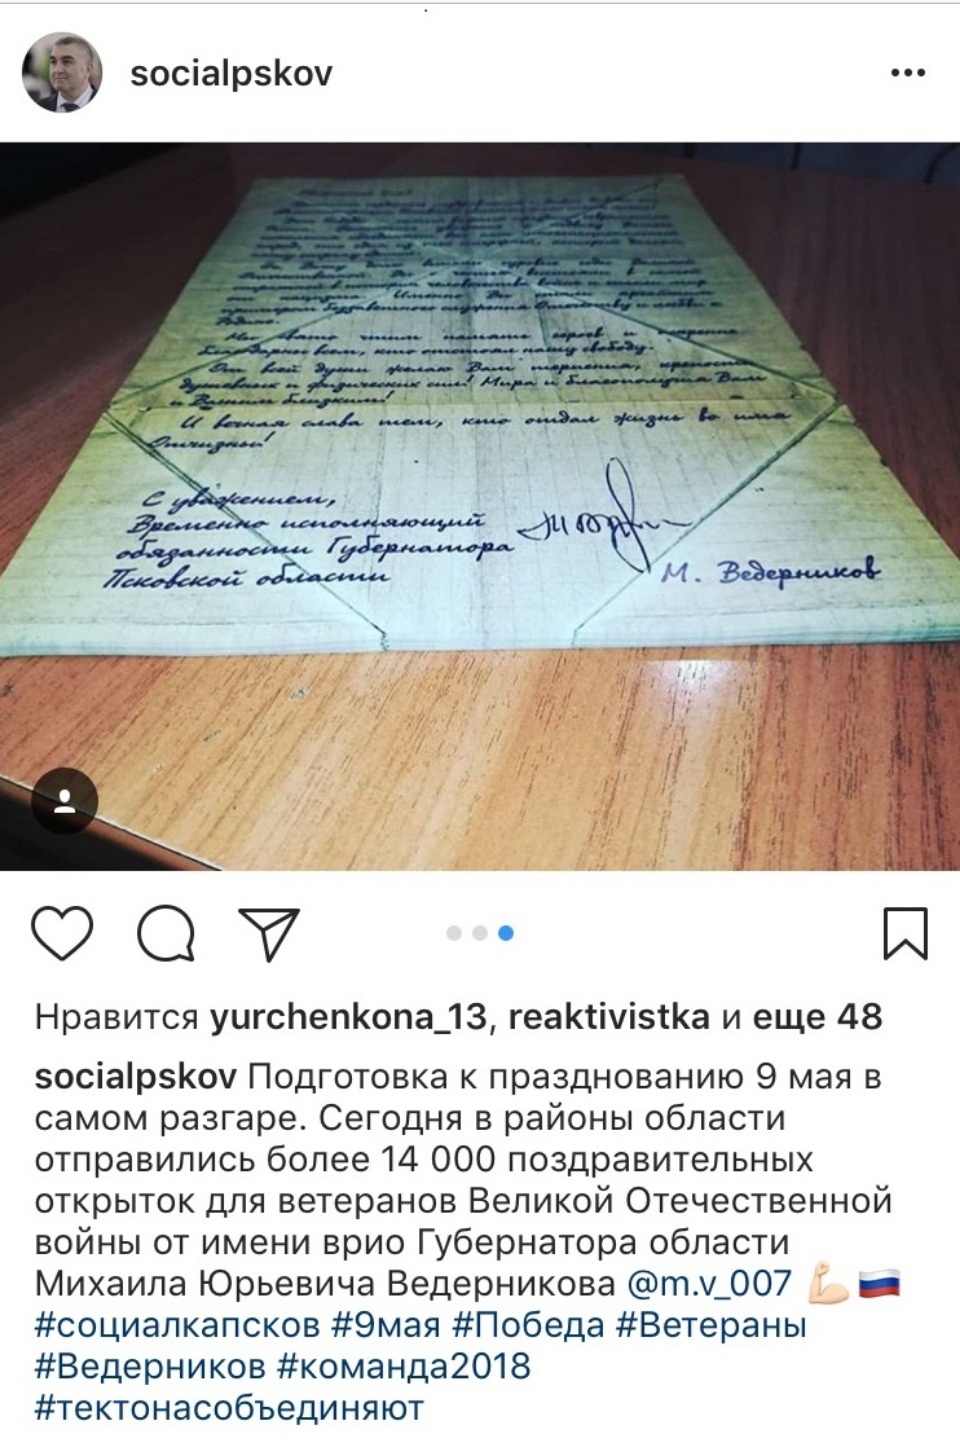 socialpskov
примером беззаветного служения Отечеству, любви к
Родине.
Мы свято чтим память героев и искренне
благодарны всем, кто отстоял нашу свободу.
От всей души желаю Вам терпения, крепости
душевных и физических сил! Мира и благополучия Вам
и Вашим близким!
И вечная слава тем, кто отдал жизнь во имя
Отчизны!
С уважением,
Временно исполняющий
обязанности Губернатора
Псковской области
М. Ведерников
Нравится yurchenkona_13, reaktivistka и еще 48
socialpskov Подготовка к празднованию 9 мая в
самом разгаре. Сегодня в районы области
отправились более 14 000 поздравительных
открыток для ветеранов Великой Отечественной
войны от имени врио Губернатора области
Михаила Юрьевича Ведерникова @m.v_007 💪🏻🇷🇺
#социалкапсков #9мая #Победа #Ветераны
#Ведерников #команда2018
#тектонасобъединяют